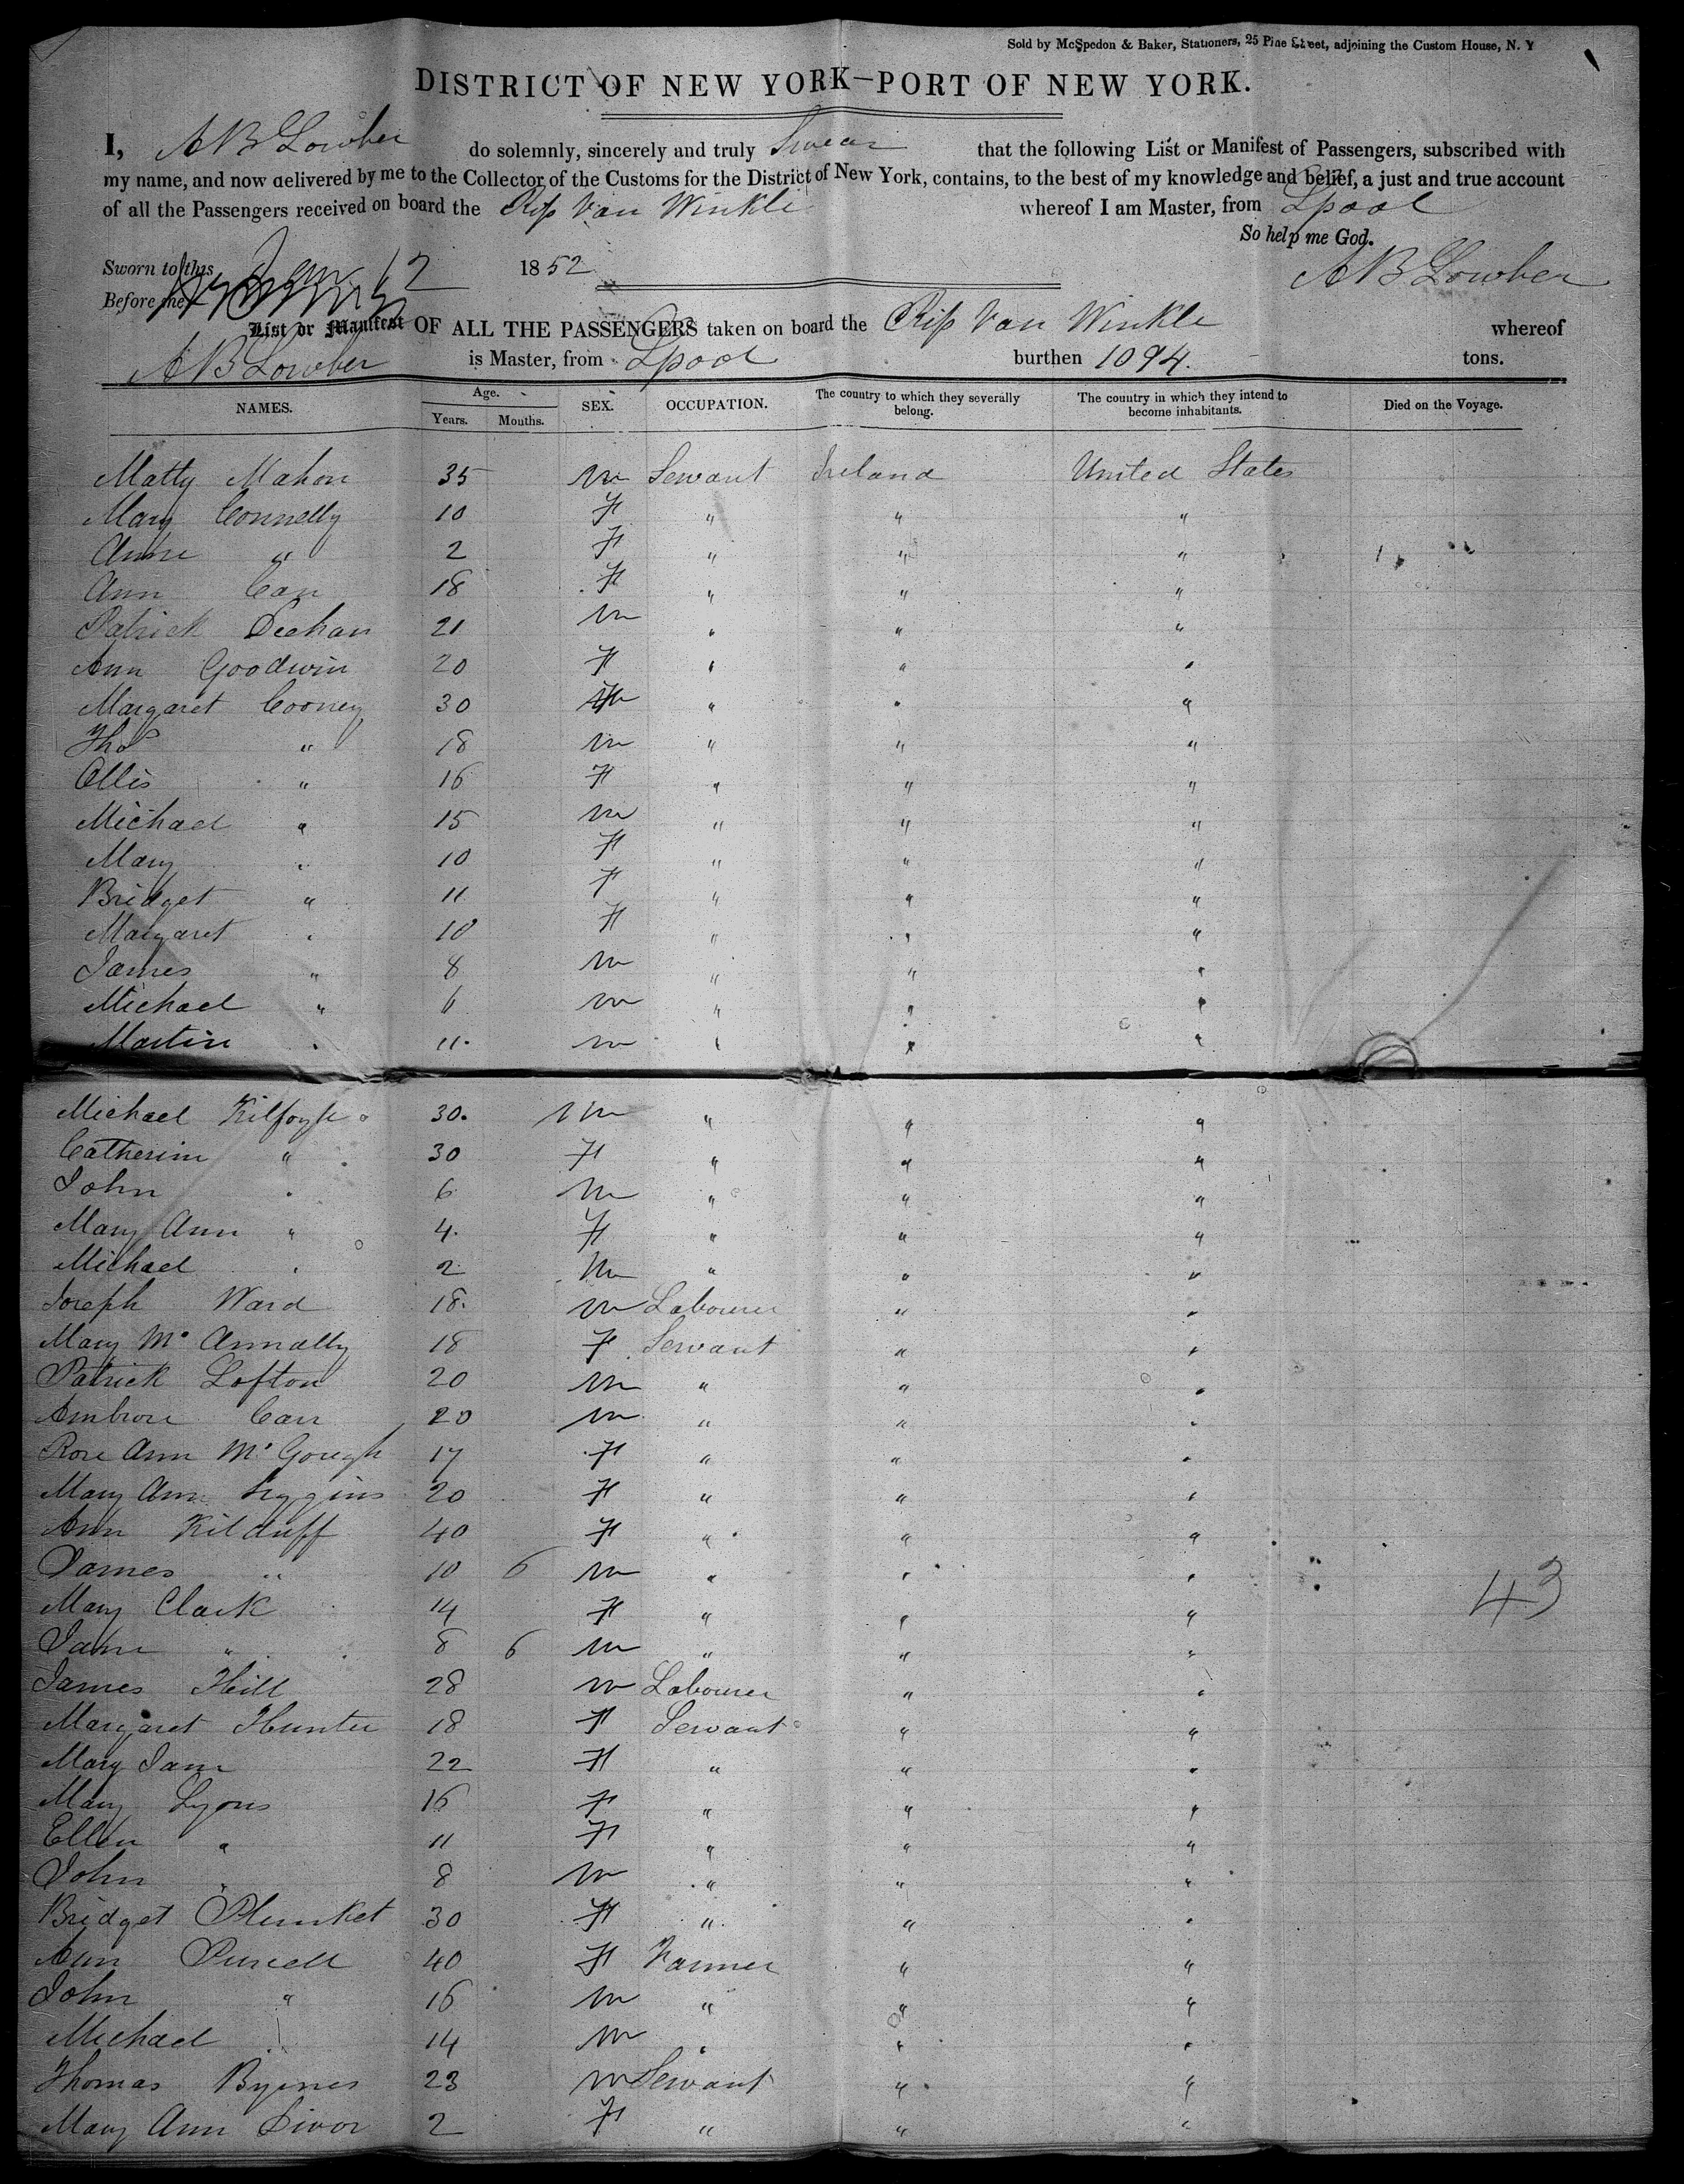 Sold by McSpedon & Baker, Stationers, 25 Pine Street, adjoining the Custom House, N. Y
DISTRICT OF NEW YORK—PORT OF NEW YORK.
I, A B Lowber do solemnly, sincerely and truly Swear that the following List or Manifest of Passengers, subscribed with
my name, and now delivered by me to the Collector of the Customs for the District of New York, contains, to the best of my knowledge and belief, a just and true account
of all the Passengers received on board the Rip Van Winkle whereof I am Master, from Lpool
So help me God.
Sworn to this Jany 12 1852 A B Lowber
Before me
List or Manifest OF ALL THE PASSENGERS taken on board the Rip Van Winkle whereof
A B Lowber is Master, from Lpool burthen 1094. tons.
NAMES. Age. Years. Months. SEX. OCCUPATION. The country to which they severally belong. The country in which they intend to become inhabitants. Died on the Voyage.
Matty Mahon 35 m Servant Ireland United States
Mary Connelly 10 F " " "
Anne " 2 F " " " 1
Ann Carr 18 F " " "
Patrick Deehan 21 m " " "
Ann Goodwin 20 F " " "
Margaret Cooney 30 F " " "
Thos " 18 m " " "
Ellis " 16 F " " "
Michael " 15 m " " "
Mary " 10 F " " "
Bridget " 11 F " " "
Margaret " 10 F " " "
James " 8 m " " "
Michael " 6 m " " "
Martin " 11. m " " "
Michael Kilfoyle 30. m " " "
Catherine " 30 F " " "
John " 6 m " " "
Mary Ann " 4. F " " "
Michael " 2 m " " "
Joseph Ward 18. m Labourer " "
Mary Mc Annally 18 F Servant " "
Patrick Lofton 20 m " " "
Ambrose Carr 20 m " " "
Rose Ann Mc Gough 17 F " " "
Mary Ann Higgins 20 F " " "
Ann Kilduff 40 F " " "
James " 10 6 m " " "
Mary Clark 14 F " " " 43
Jame " 8 6 m " " "
James Hill 28 m Labourer " "
Margaret Hunter 18 F Servant " "
Mary Jane 22 F " " "
Mary Lyons 16 F " " "
Ellen " 11 F " " "
John " 8 m " " "
Bridget Plunket 30 F " " "
Ann Purcell 40 F Farmer " "
John " 16 m " " "
Michael " 14 m " " "
Thomas Byrnes 23 m Servant " "
Mary Ann 2 F " " "